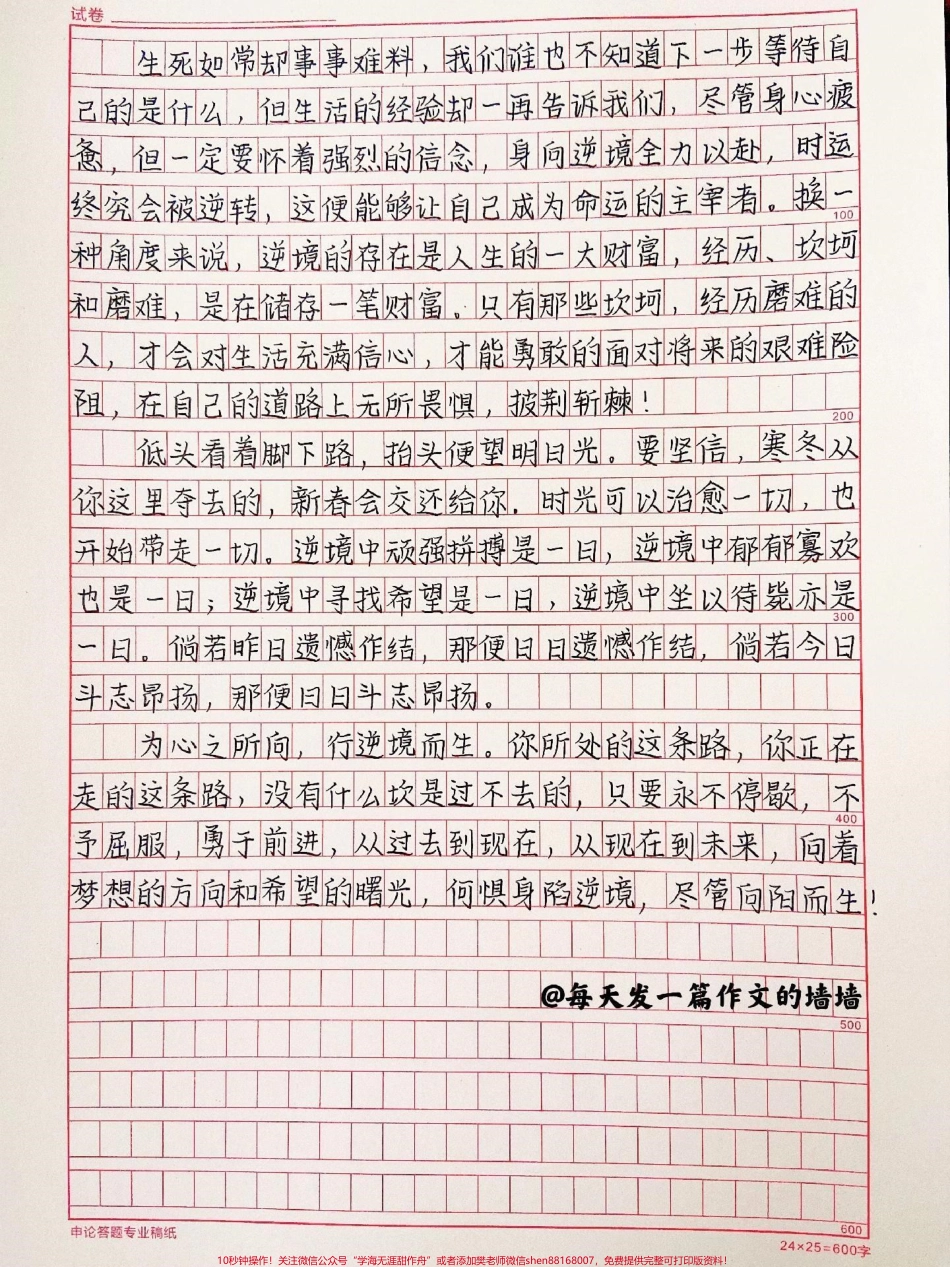 试卷
生死如常却事事难料，我们谁也不知道下一步等待自
己的是什么，但生活的经验却一再告诉我们，尽管身心疲
惫，但一定要怀着强烈的信念，身向逆境全力以赴，时运
终究会被逆转，这便能够让自己成为命运的主宰者。换一
100
种角度来说，逆境的存在是人生的一大财富，经历、坎坷
和磨难，是在储存一笔财富。只有那些坎坷，经历磨难的
人，才会对生活充满信心，才能勇敢的面对将来的艰难险
阻，在自己的道路上无所畏惧，披荆斩棘！
200
低头看着脚下路，抬头便望明日光。要坚信，寒冬从
你这里夺去的，新春会交还给你．时光可以治愈一切，也
开始带走一切。逆境中顽强拼搏是一日，逆境中郁郁寡欢
也是一日；逆境中寻找希望是一日，逆境中坐以待毙亦是
300
一日。倘若昨日遗憾作结，那便日日遗憾作结，倘若今日
斗志昂扬，那便日日斗志昂扬。
为心之所向，行逆境而生。你所处的这条路，你正在
走的这条路，没有什么坎是过不去的，只要永不停歇，不
400
予屈服，勇于前进，从过去到现在，从现在到未来，向着
梦想的方向和希望的曙光，何惧身陷逆境，尽管向阳而生！
@每天发一篇作文的墙墙
500
600
申论答题专业稿纸
24×25=600字
10秒钟操作！关注微信公众号“学海无涯甜作舟”或者添加樊老师微信shen88168007，免费提供完整可打印版资料！